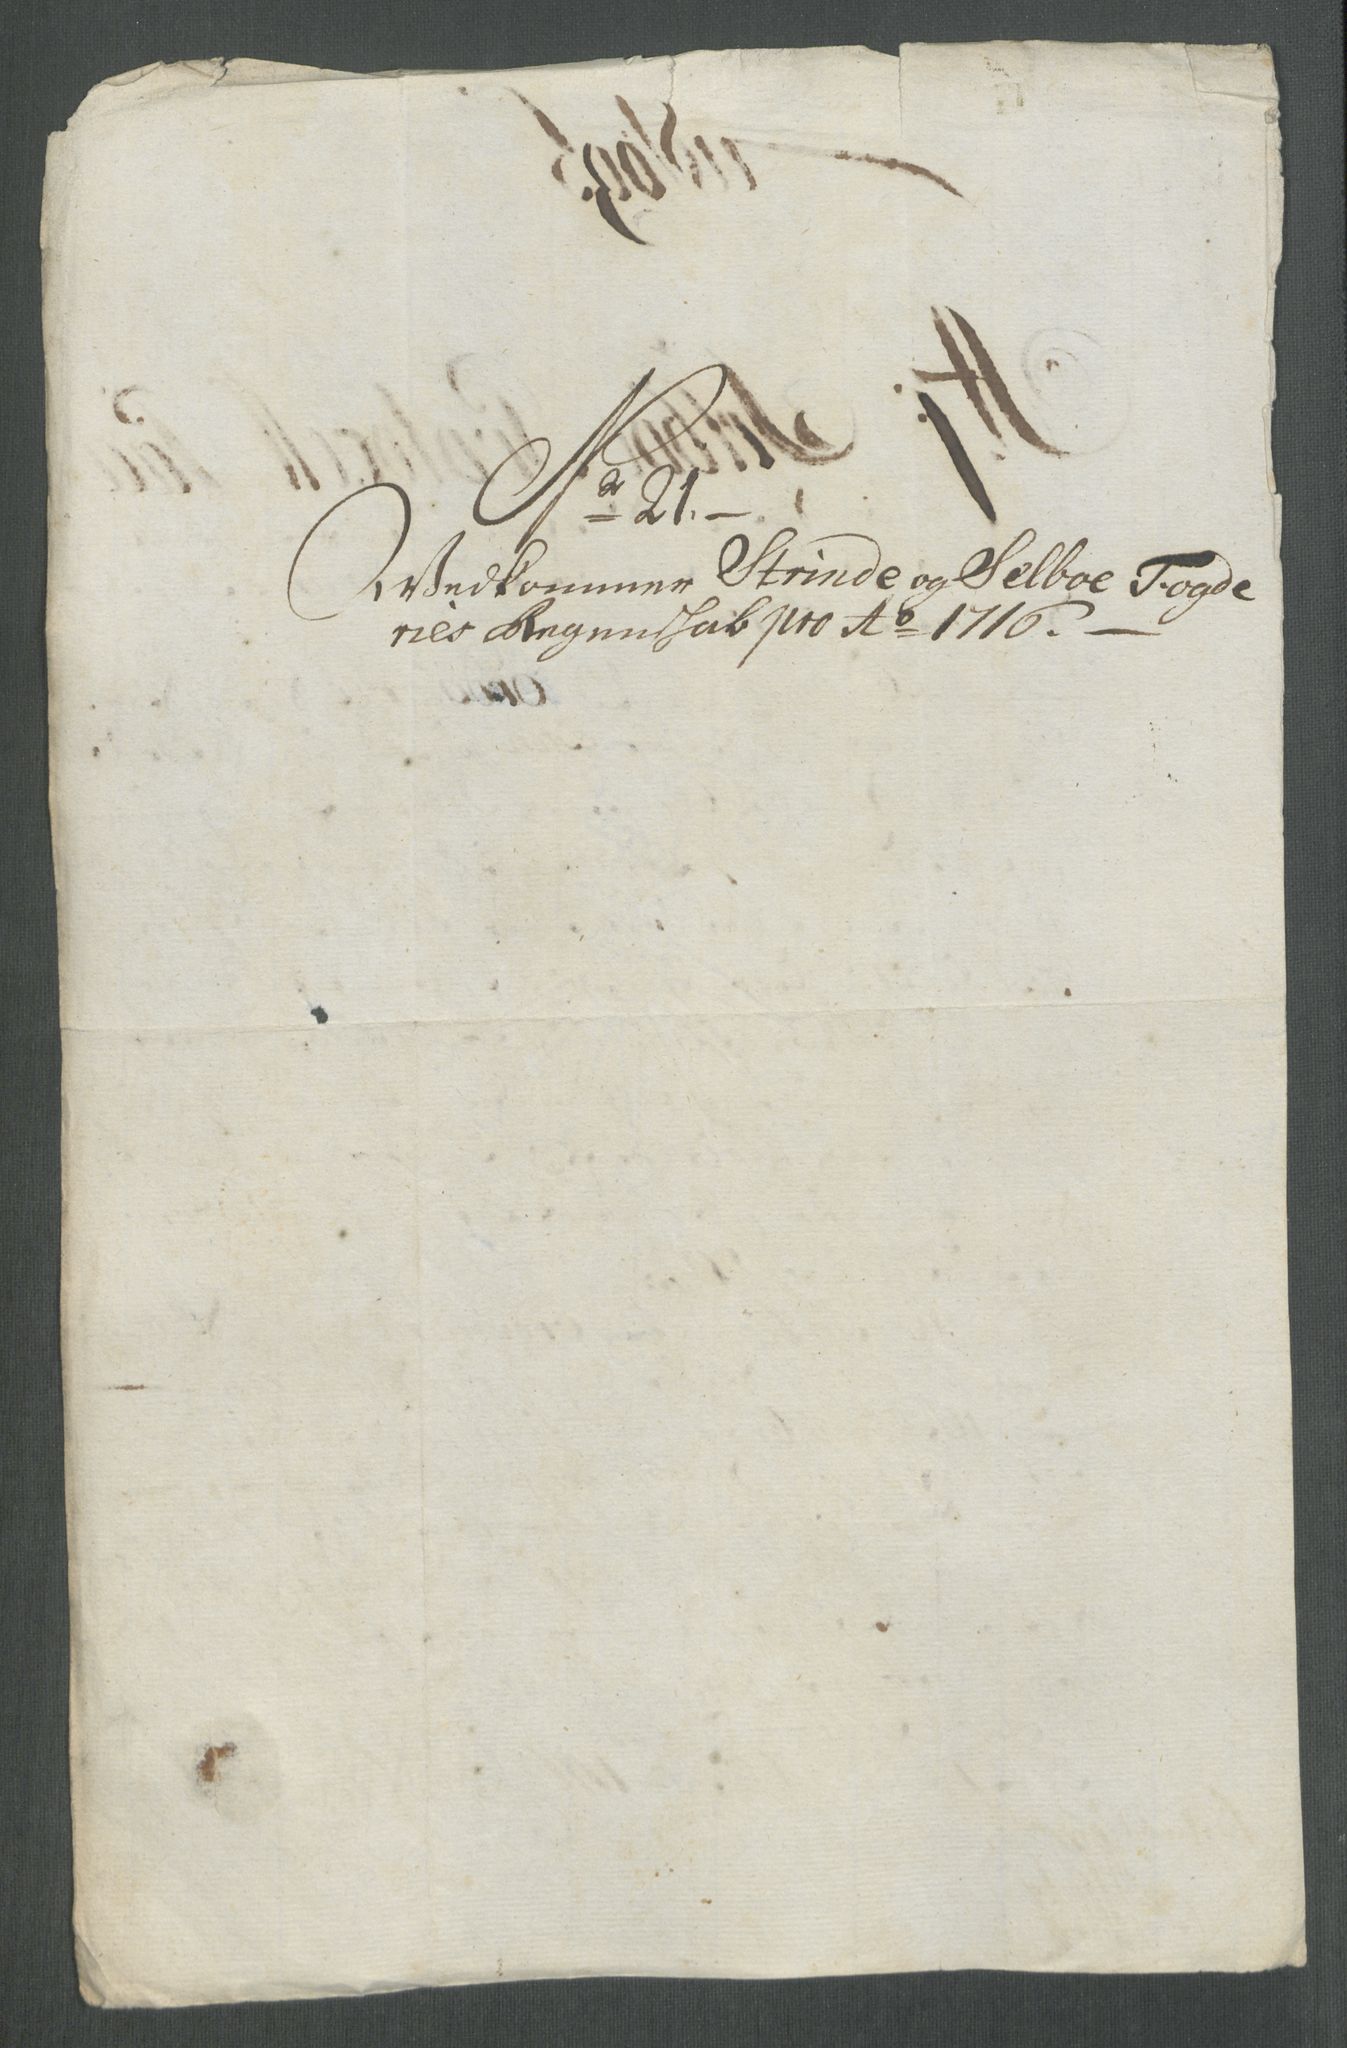 No 21.
Vedkommer Strinde og Selboe Fogde
ries Regenskab pro Ao 1716.